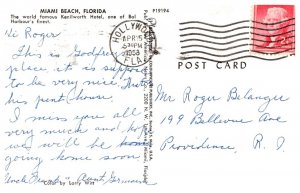 MIAMI BEACH, FLORIDA
The world famous Kenilworth Hotel, one of Bal
Harbour's finest.
P19194
HOLLYWOOD
APR 15
530PM
FLA.
POST CARD
Hi Roger
This is Godfrey
place it is suppose
to be very nice. This
his pent house
I miss you all
very much and hope
we will be
going home soon
Uncle Aunt Germaine
Color by Larry Witt
Mr Roger Belanger
199 Bellevue Ave
Providence, R. I.